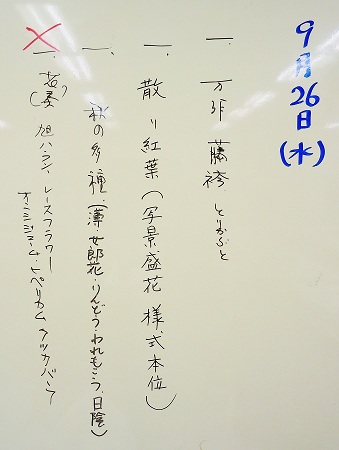 9月26日(水)
一、万作 藤袴 とりかぶと
一、散り紅葉(写景盛花 様式本位)
一、秋の多種(薄、女郎花、りんどう、われもこう、日陰)
一、 旭ハラン、レースフラワー
ヒペリカム